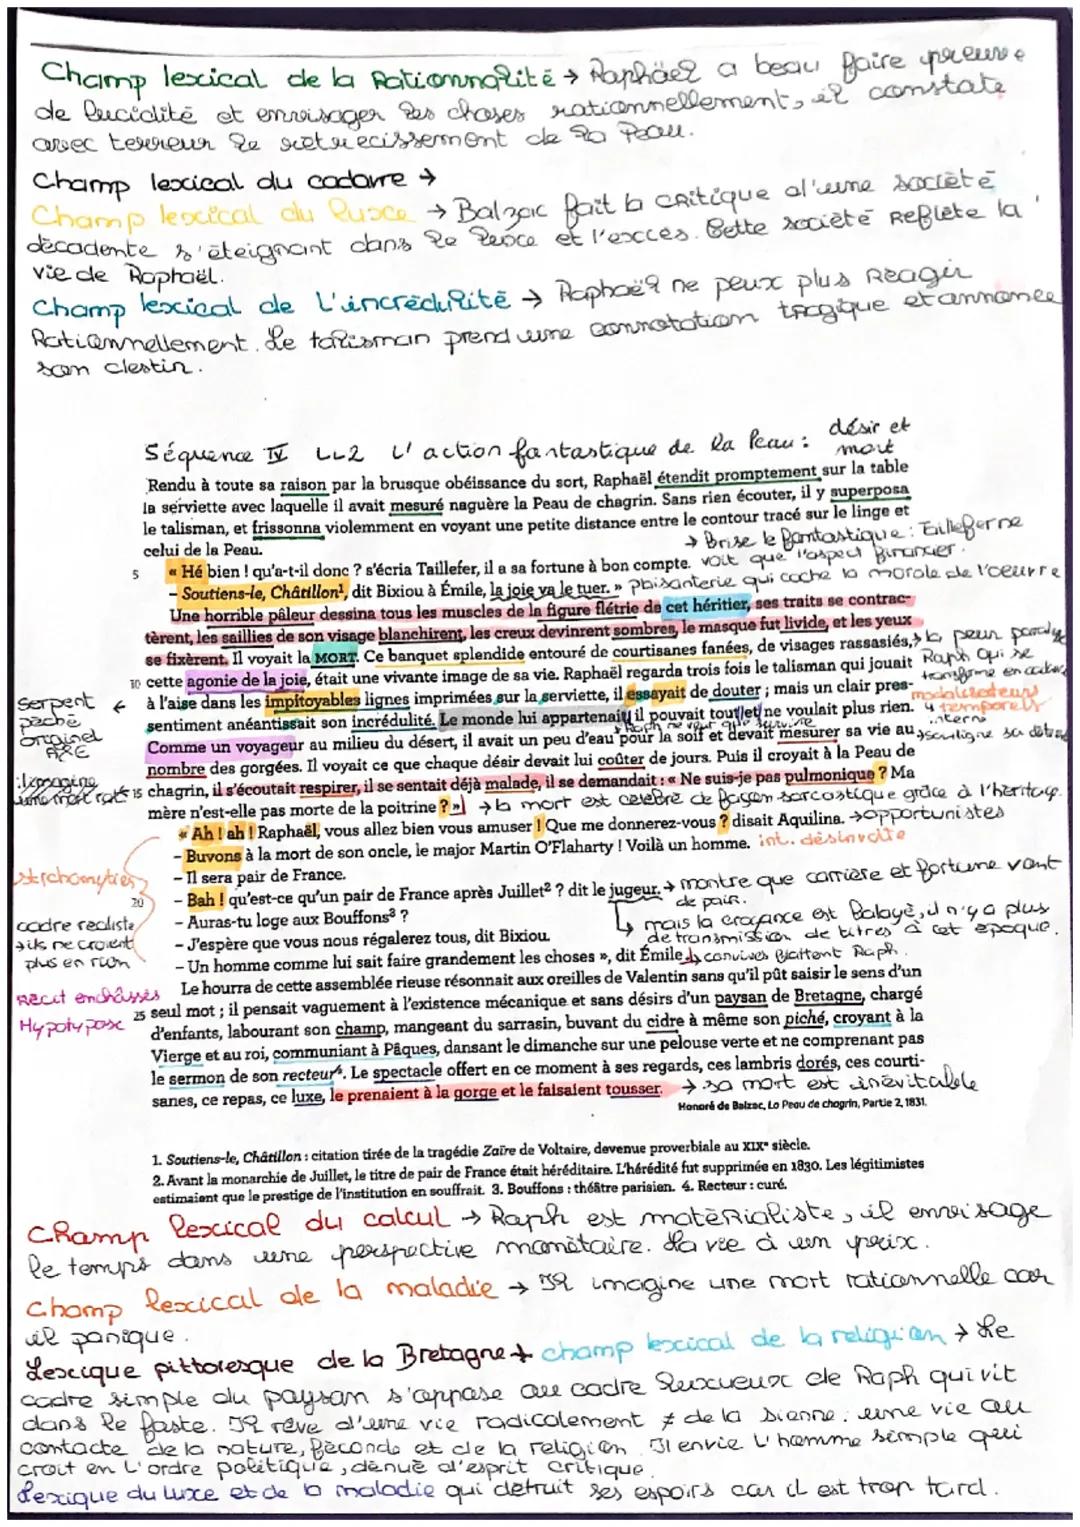 Champ lexical de la Rationnalité → Raphaël a beau faire preuve
de lucidité et envisager les choses rationnellement, il constate
avec terreur le retrecissement de la Peau.
Champ lexical du cadavre →
Champ lexical du luxe → Balzac fait la critique d'une société
décadente s'éteignant dans le luxe et l'excès. Cette société Reflète la
vie de Raphaël.
Champ lexical de l'incrédulité → Raphaël ne peux plus Réagir
Rationnellement. Le talisman prend une connotation tragique et annonce
son destin.
Séquence IV LL2 L'action fantastique de la Peau : désir et
mort
Rendu à toute sa raison par la brusque obéissance du sort, Raphaël étendit promptement sur la table
la serviette avec laquelle il avait mesuré naguère la Peau de chagrin. Sans rien écouter, il y superposa
le talisman, et frissonna violemment en voyant une petite distance entre le contour tracé sur le linge et
celui de la Peau.
→ Brise le fantastique : Tailleferne
voit que l'aspect financier.
5 « Hé bien ! qu'a-t-il donc ? s'écria Taillefer, il a sa fortune à bon compte.
– Soutiens-le, Châtillon¹, dit Bixiou à Émile, la joie va le tuer. » plaisanterie qui cache la morale de l'oeuvre
Une horrible pâleur dessina tous les muscles de la figure flétrie de cet héritier, ses traits se contrac-
tèrent, les saillies de son visage blanchirent, les creux devinrent sombres, le masque fut livide, et les yeux
se fixèrent. Il voyait la MORT. Ce banquet splendide entouré de courtisanes fanées, de visages rassasiés,
→ la peur paralyse
Raph qui se
transforme en cadavre
10 cette agonie de la joie, était une vivante image de sa vie. Raphaël regarda trois fois le talisman qui jouait
à l'aise dans les impitoyables lignes imprimées sur la serviette, il essayait de douter ; mais un clair pres-
modalisateurs
serpent ←
péché
originel
sentiment anéantissait son incrédulité. Le monde lui appartenait, il pouvait tout et ne voulait plus rien.
4 temporels
interne
Raph ne veut que survivre
Comme un voyageur au milieu du désert, il avait un peu d'eau pour la soif et devait mesurer sa vie au
→ souligne sa
nombre des gorgées. Il voyait ce que chaque désir devait lui coûter de jours. Puis il croyait à la Peau de
il imagine
une mort rat°
15 chagrin, il s'écoutait respirer, il se sentait déjà malade, il se demandait : « Ne suis-je pas pulmonique ? Ma
mère n'est-elle pas morte de la poitrine ? » → la mort est célébré de façon sarcastique grâce à l'héritage.
« Ah ! ah ! Raphaël, vous allez bien vous amuser ! Que me donnerez-vous ? disait Aquilina. → opportunistes
– Buvons à la mort de son oncle, le major Martin O'Flaharty ! Voilà un homme. int. désinvolte
– Il sera pair de France.
stichomythies
20 – Bah ! qu'est-ce qu'un pair de France après Juillet² ? dit le jugeur. → montre que carrière et fortune vont
de pair.
– Auras-tu loge aux Bouffons³ ?
mais la croyance est Balayé, il n'y a plus
de transmission de titres à cet époque.
cadre realiste
→ ils ne croient
plus en rien
– J'espère que vous nous régalerez tous, dit Bixiou.
– Un homme comme lui sait faire grandement les choses », dit Émile. ↳ convives flattent Raph.
Récit enchâssés
Hypotypose
Le hourra de cette assemblée rieuse résonnait aux oreilles de Valentin sans qu'il pût saisir le sens d'un
25 seul mot ; il pensait vaguement à l'existence mécanique et sans désirs d'un paysan de Bretagne, chargé
d'enfants, labourant son champ, mangeant du sarrasin, buvant du cidre à même son piché, croyant à la
Vierge et au roi, communiant à Pâques, dansant le dimanche sur une pelouse verte et ne comprenant pas
le sermon de son recteur⁴. Le spectacle offert en ce moment à ses regards, ces lambris dorés, ces courti-
sanes, ce repas, ce luxe, le prenaient à la gorge et le faisaient tousser. → sa mort est inévitable
Honoré de Balzac, La Peau de chagrin, Partie 2, 1831.
1. Soutiens-le, Châtillon : citation tirée de la tragédie Zaïre de Voltaire, devenue proverbiale au XIXᵉ siècle.
2. Avant la monarchie de Juillet, le titre de pair de France était héréditaire. L'hérédité fut supprimée en 1830. Les légitimistes
estimaient que le prestige de l'institution en souffrait. 3. Bouffons : théâtre parisien. 4. Recteur : curé.
Champ lexical du calcul → Raph est matérialiste, il envisage
le temps dans une perspective monétaire. La vie à un prix.
Champ lexical de la maladie → Il imagine une mort rationnelle car
il panique.
Lexique pittoresque de la Bretagne + champ lexical de la religion → Le
cadre simple du paysan s'oppose au cadre luxueux de Raph qui vit
dans le faste. Il rêve d'une vie radicalement ≠ de la sienne : une vie au
contacte de la nature, féconde et de la religion. Il envie l'homme simple qui
croit en l'ordre politique, dénué d'esprit critique.
Lexique du luxe et de la maladie qui détruit ses espoirs car il est trop tard.